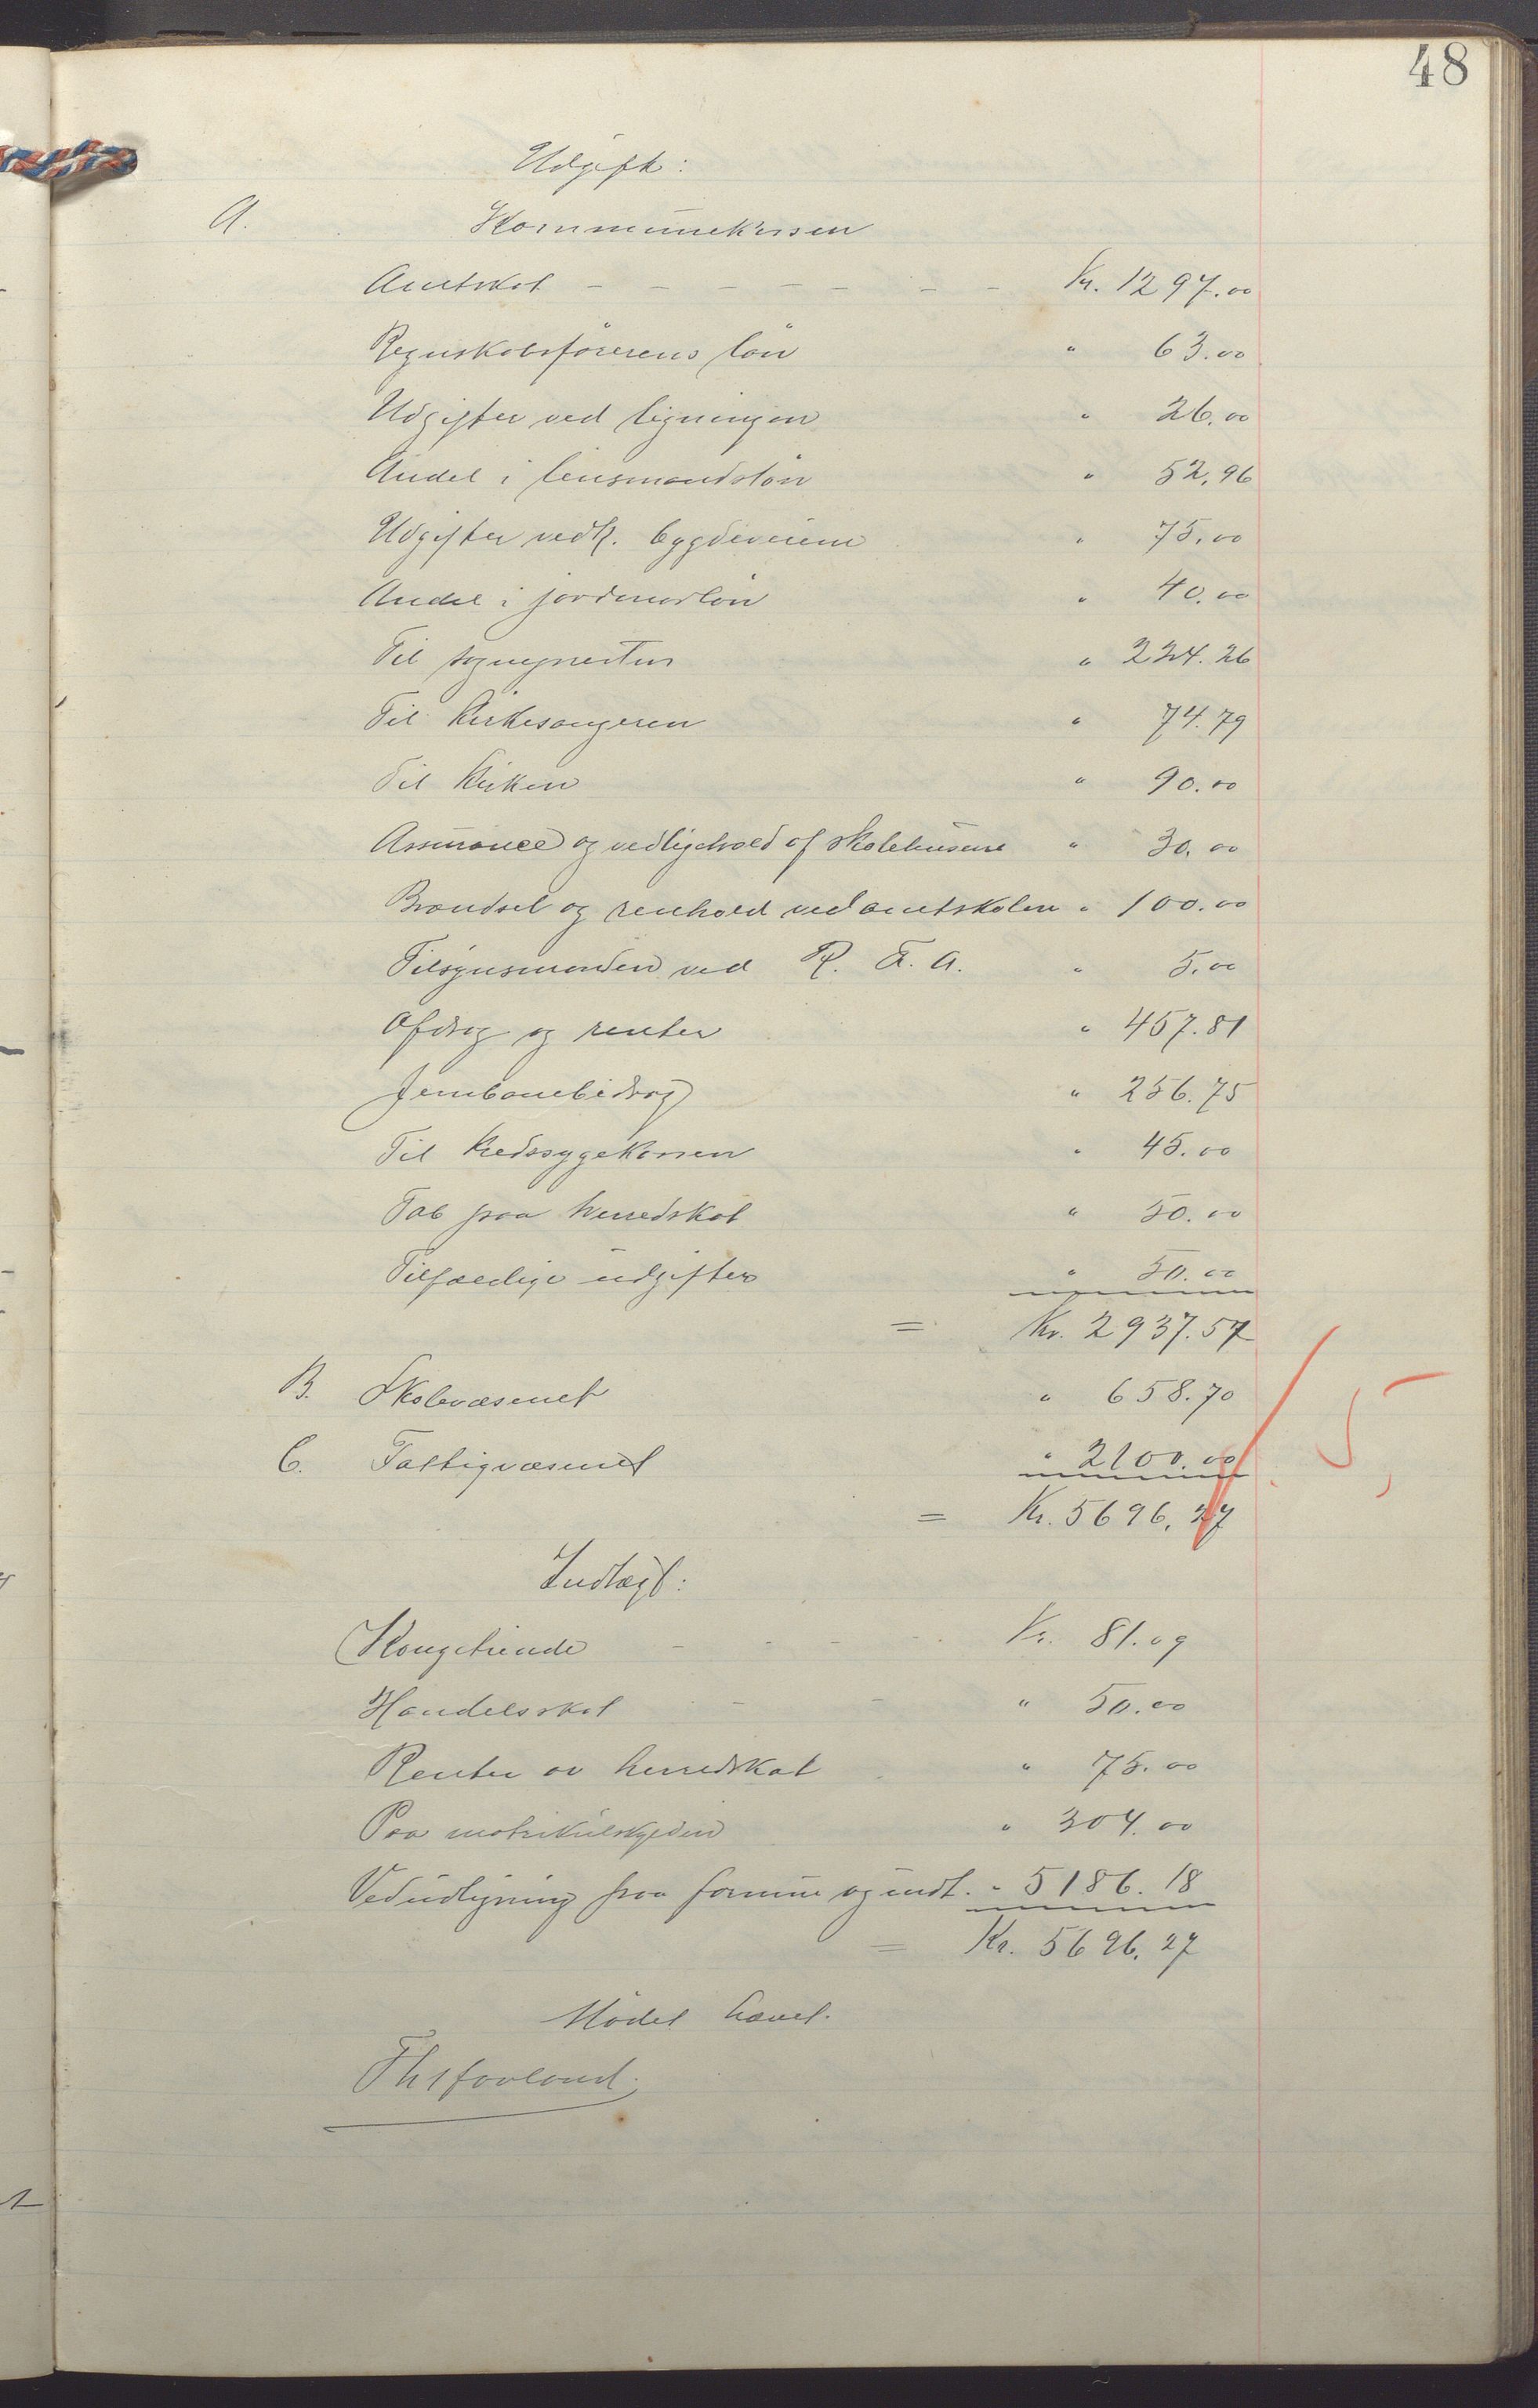 48
Udgift:
A. Kommunekassen
Amtskat - - - - - - - Kr. 1297.00
Regnskabsførerens løn " 63.00
Udgifter ved ligningen " 26.00
Andel i lensmandsløn " 52,96
Udgifter vedk. bygdeveiene " 75.00
Andel i jordmorløn " 40.00
Til sognepresten " 224.26
Til kirkesangeren " 74.79
Til kirken " 90.00
Assurance og vedligehold af skolehusene " 30.00
Brændsel og renhold ved amtskolen " 100.00
Tilsynsmanden ved R. F. A. " 5.00
Afdrag og renter " 457.81
Jernbanebidrag " 256.75
Til kredssygekassen " 45.00
Tab paa herredskat " 50.00
Tilfældige udgifter " 50.00
= Kr. 2937.57
B. Skolevæsenet " 658.70
C. Fattigvæsenet " 2100.00
= Kr. 5696,27
Indtægt:
Kongetiende - - - - Kr. 81.09
Handelsskat - - " 50.00
Renter av herredskat " 75.00
Paa matrikulskylden " 304.00
Ved udligning paa formue og indt. " 5186.18
= Kr. 5696,27
Mødet hævet.